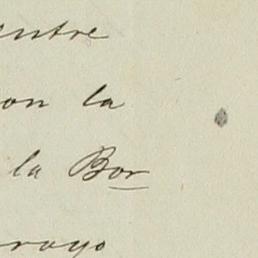 entre
on la
la Bor
rrayo